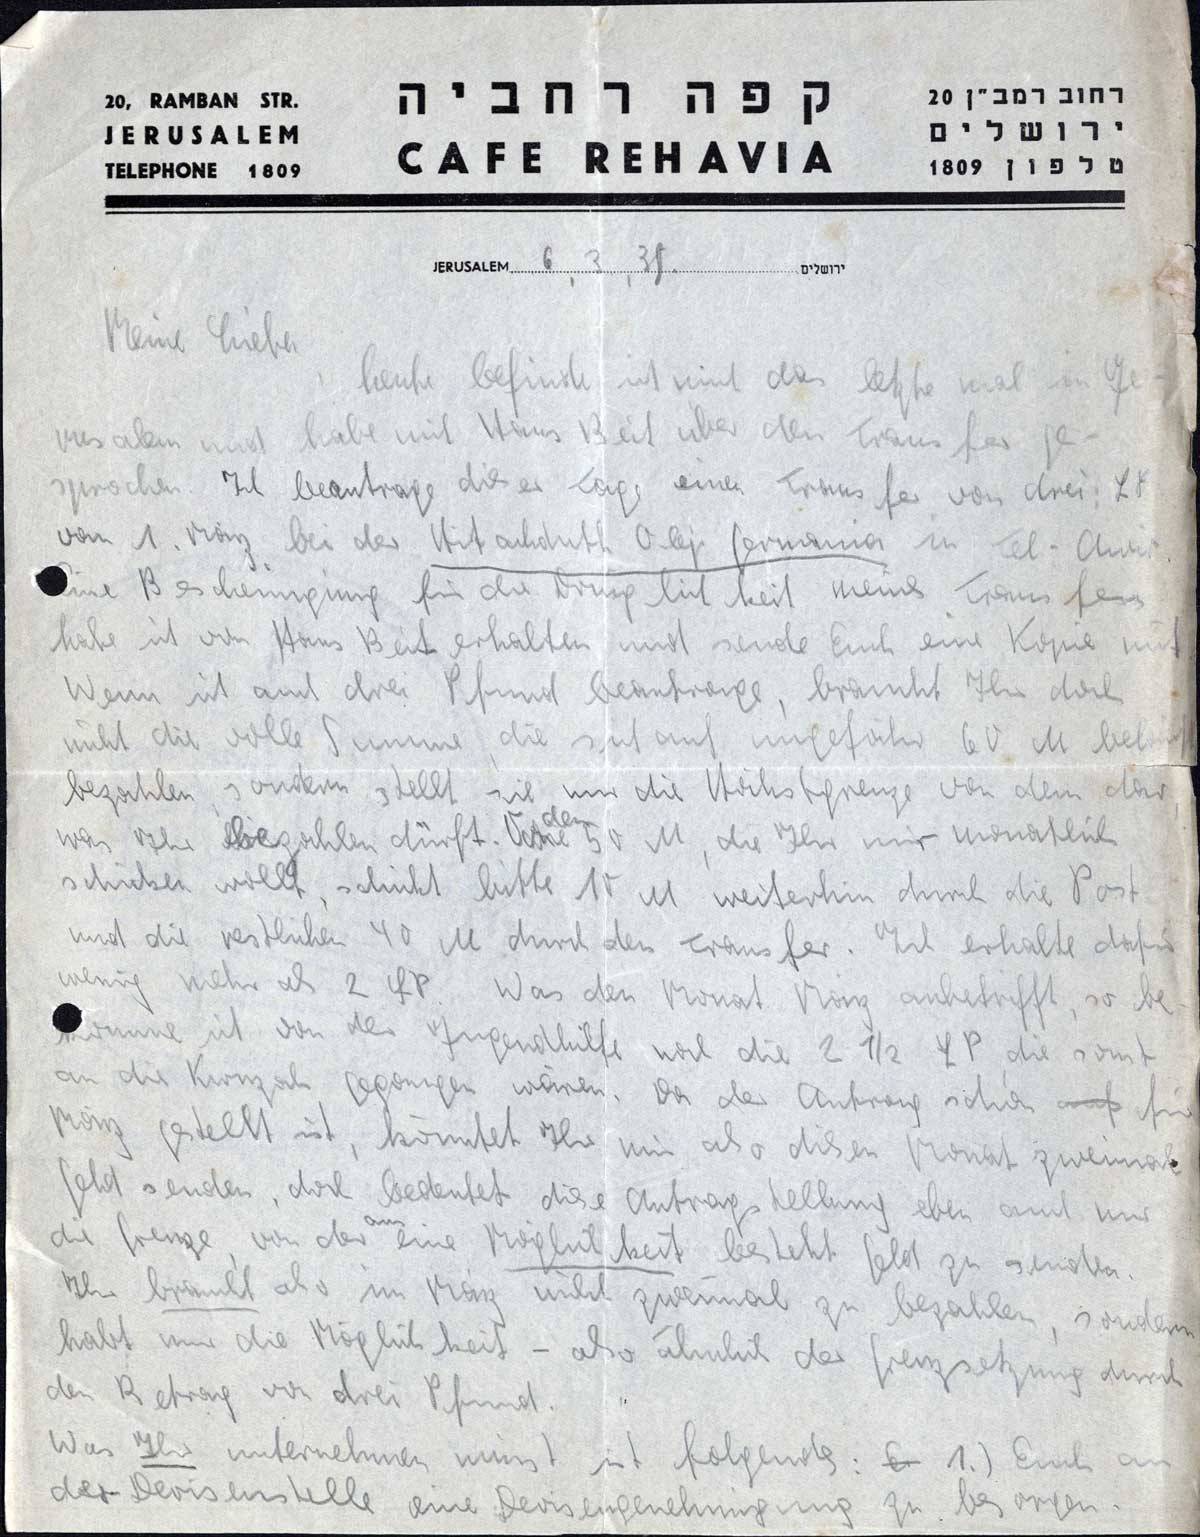 20, RAMBAN STR.
JERUSALEM
TELEPHONE 1809
קפה רחביה
CAFE REHAVIA
רחוב רמב״ן 20
ירושלים
טלפון 1809
JERUSALEM 6.3.38. ירושלים
Meine Lieben
, heute befinde ich mich das letzte mal in Je-
rusalem und habe mit Hans Beit über den Transfer ge-
sprochen. Ich beantrage dieser Tage einen Transfer von drei LP
vom 1. März bei der Hitachduth Olej Germania in Tel-Aviv.
Eine Bescheinigung für die Dringlichkeit meines Transfers
habe ich von Hans Beit erhalten und sende Euch eine Kopie mit
Wenn ich auch drei Pfund beantrage, braucht Ihr doch
nicht die volle Summe, die sich auf ungefähr 60 M
bezahlen, sondern stellt sie nur die Höchstgrenze von dem dar
was Ihr bezahlen dürft. Von den 50 M, die Ihr mir monatlich
schicken wollt, schickt bitte 10 M weiterhin durch die Post
und die restlichen 40 M durch den Transfer. Ich erhalte dafür
wenig mehr als 2 LP. Was den Monat März anbetrifft, so be-
komme ich von der Jugendhilfe noch die 2 1/2 LP, die sonst
an die Kwuzah gegangen wären. Da der Antrag schon für
März gestellt ist, könntet Ihr mir also diesen Monat zweimal
Geld senden, doch bedeutet diese Antragstellung eben auch nur
die Grenze, von der aus eine Möglichkeit besteht Geld zu senden.
Ihr braucht also im März nicht zweimal zu bezahlen, sondern
habt nur die Möglichkeit - also ähnlich der Grenzsetzung durch
den Betrag von drei Pfund.
Was Ihr unternehmen müsst ist folgendes: 1.) Euch an
der Devisenstelle eine Devisengenehmigung zu besorgen.